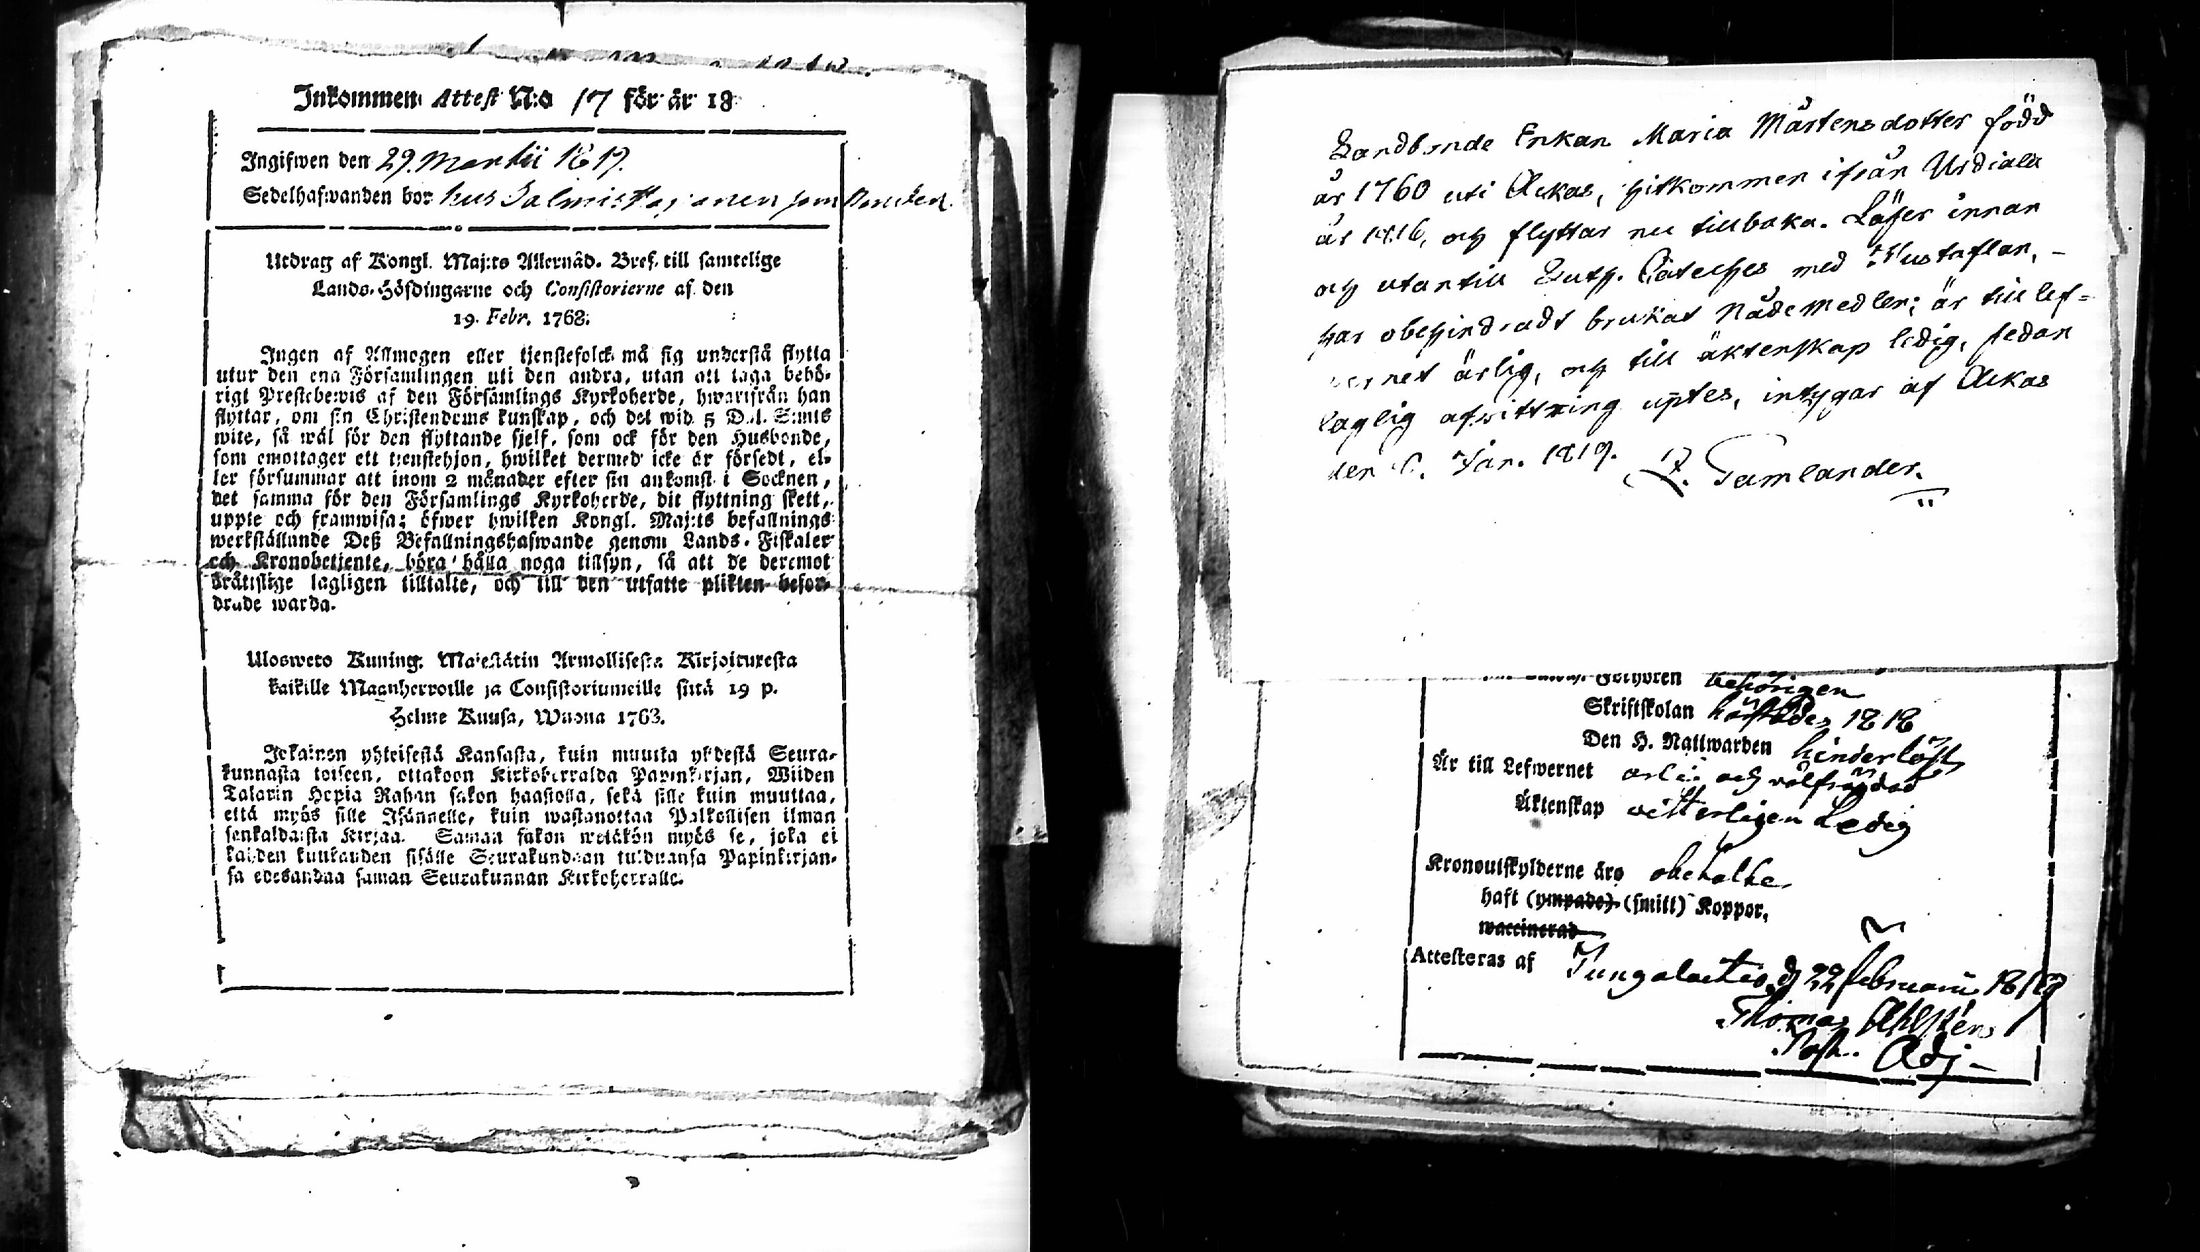 Inkommen Attest N:o 17 för år 18
Ingifwen den 29. Martii 1819.
Sedelhafwanden bor hus
Utdrag af Kongl. Maj:ts Allernåd. Bref till samtelige
Lands-Höfdingarne och Consistorierne af den
19. Febr. 1768.
Ingen af Allmogen eller tjenstefolck må sig understå flytta
utur den ena Församlingen uti den andra, utan att taga behö-
rigt Prestebewis af den Församlings Kyrkoherde, hwarifrån han
flyttar, om sin Christendoms kunskap, och det wid 5 Dal. S:mts
wite, så wäl för den flyttande sjelf, som ock för den Husbonde,
som emottager ett tjenstehjon, hwilket dermed icke är försedt, el-
ler försummar att inom 2 månader efter sin ankomst i Socknen,
det samma för den Församlings Kyrkoherde, dit flyttning skett,
uppte och framwisa; öfwer hwilken Kongl. Maj:ts befallnings
werkställande Deß Befallningshafwande genom Lands-Fiskaler
och Kronobetjente, böra hålla noga tillsyn, så att de deremot
bråttslige lagligen tilltalte, och till den utsatte plikten befor-
drade warda.
Ulosweto Kuning. Majestätin Armollisesta Kirjoituresta
kaikille Maanherroille ja Consistoriumeille siitä 19 p.
Helme Kuusa, Wuona 1763.
Jokainen yhteisestä Kansasta, kuin muutta yhdestä Seura-
kunnasta toiseen, ottakoon Kirkoherralda Papinkirjan, Wiiden
Talarin Hopia Rahan sakon haastolla, sekä sille kuin muuttaa,
että myös sille Isännelle, kuin wastanottaa Palkollisen ilman
senkaldaista Kirjaa. Saman sakon wetäkön myös se, joka ei
kahden kuukauden sisälle Seurakundaan tulduansa Papinkirjan-
sa edesandaa saman Seurakunnan Kirkoherralle.
Landbonde Enkan Maria Mårtensdotter född
år 1760 uti Ackas, hitkommen ifrån Urdiala
år 1816, och flyttar nu tillbaka. Läser innan
och utantill Luth. Cateches med Hustaflan, -
har obehindradt brukat Nådemedlen; är till lef-
wernet ärlig, och till äktenskap ledig, sedan
laglig afwittring uptes, intygar af Ackas
den 6. Jan. 1819. Z. Tamlander.
Förhören behörigen
Skriftskolan 1818
Den H. Nattwarden hinderlöst
Är till Lefwernet och wälfrägdad
Äktenskap witterligen Ledig
Kronoutskylderne äro obetalte
haft (ympade) (smitt) Koppor,
waccinerad
Attesteras af d 22 februarii 1819
Thomas Ahlstén
Past. Adj.